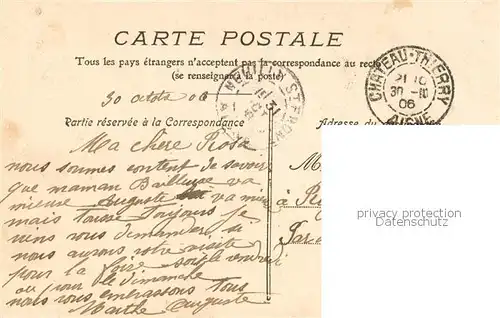 CARTE POSTALE
Tous les pays étrangers n'acceptent pas la correspondance au recto
(se renseigner à la poste)
CHATEAU-THIERRY
30
06
AISNE
NEUILLY ST FRONT
30 06
Partie réservée à la Correspondance
Adresse du
Ma chère Rosa
nous sommes content de savoir
que maman va
mieuse Auguste va mieu
mais tousse toujours je
viens vous demander si
nous aurons votre visite
pour la foire soit le vendredi
ou pour le dimanche
nous vous embrassons tous
Marthe Auguste
M
à
privacy protection
Datenschutz